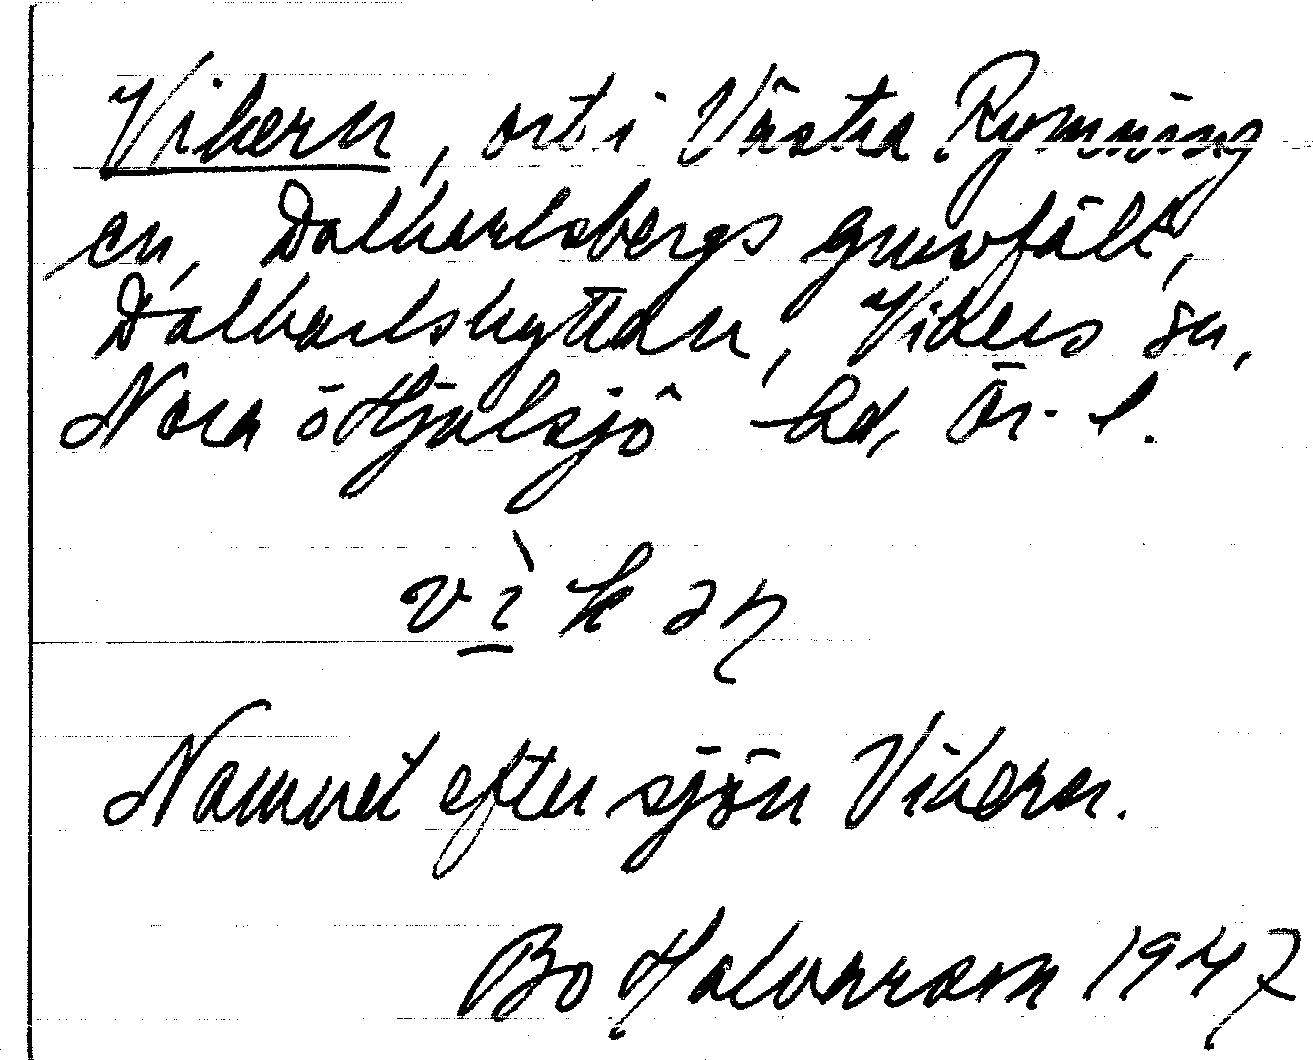 Vikern, ort i Västra Rymning
en, Dalkarlsbergs gruvfält,
Dalkarlshyttan, Vikers sn,
Nora ö Hjulsjö hd, Ör. l.
vìkəɳ
Namnet efter sjön Vikern.
Bo Halvarson 1947